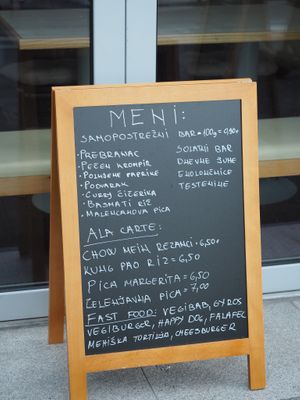 MENI:
SAMOPOSTREŽNI BAR • 100g = 0,90€
• PREBRANAC
• PEČEN KROMPIR
• POLNJENE PAPRIKE
• PODVARAK
• CURRY ČIČERIKA
• BASMATI RIŽ
• MALANCANOVA PICA
SOLATNI BAR
DNEVNE JUHE
ENOLONČNICE
TESTENINE
ALA CARTE:
CHOW MEIN REZANCI • 6,50
KUNG PAO RIŽ = 6,50
PICA MARGERITA = 6,50
ZELENJAVNA PICA = 7,00
FAST FOOD: VEGIBAB, GYROS
VEGIBURGER, HAPPY DOG, FALAFEL
MEHIŠKA TORTILJA, CHEESBURGER